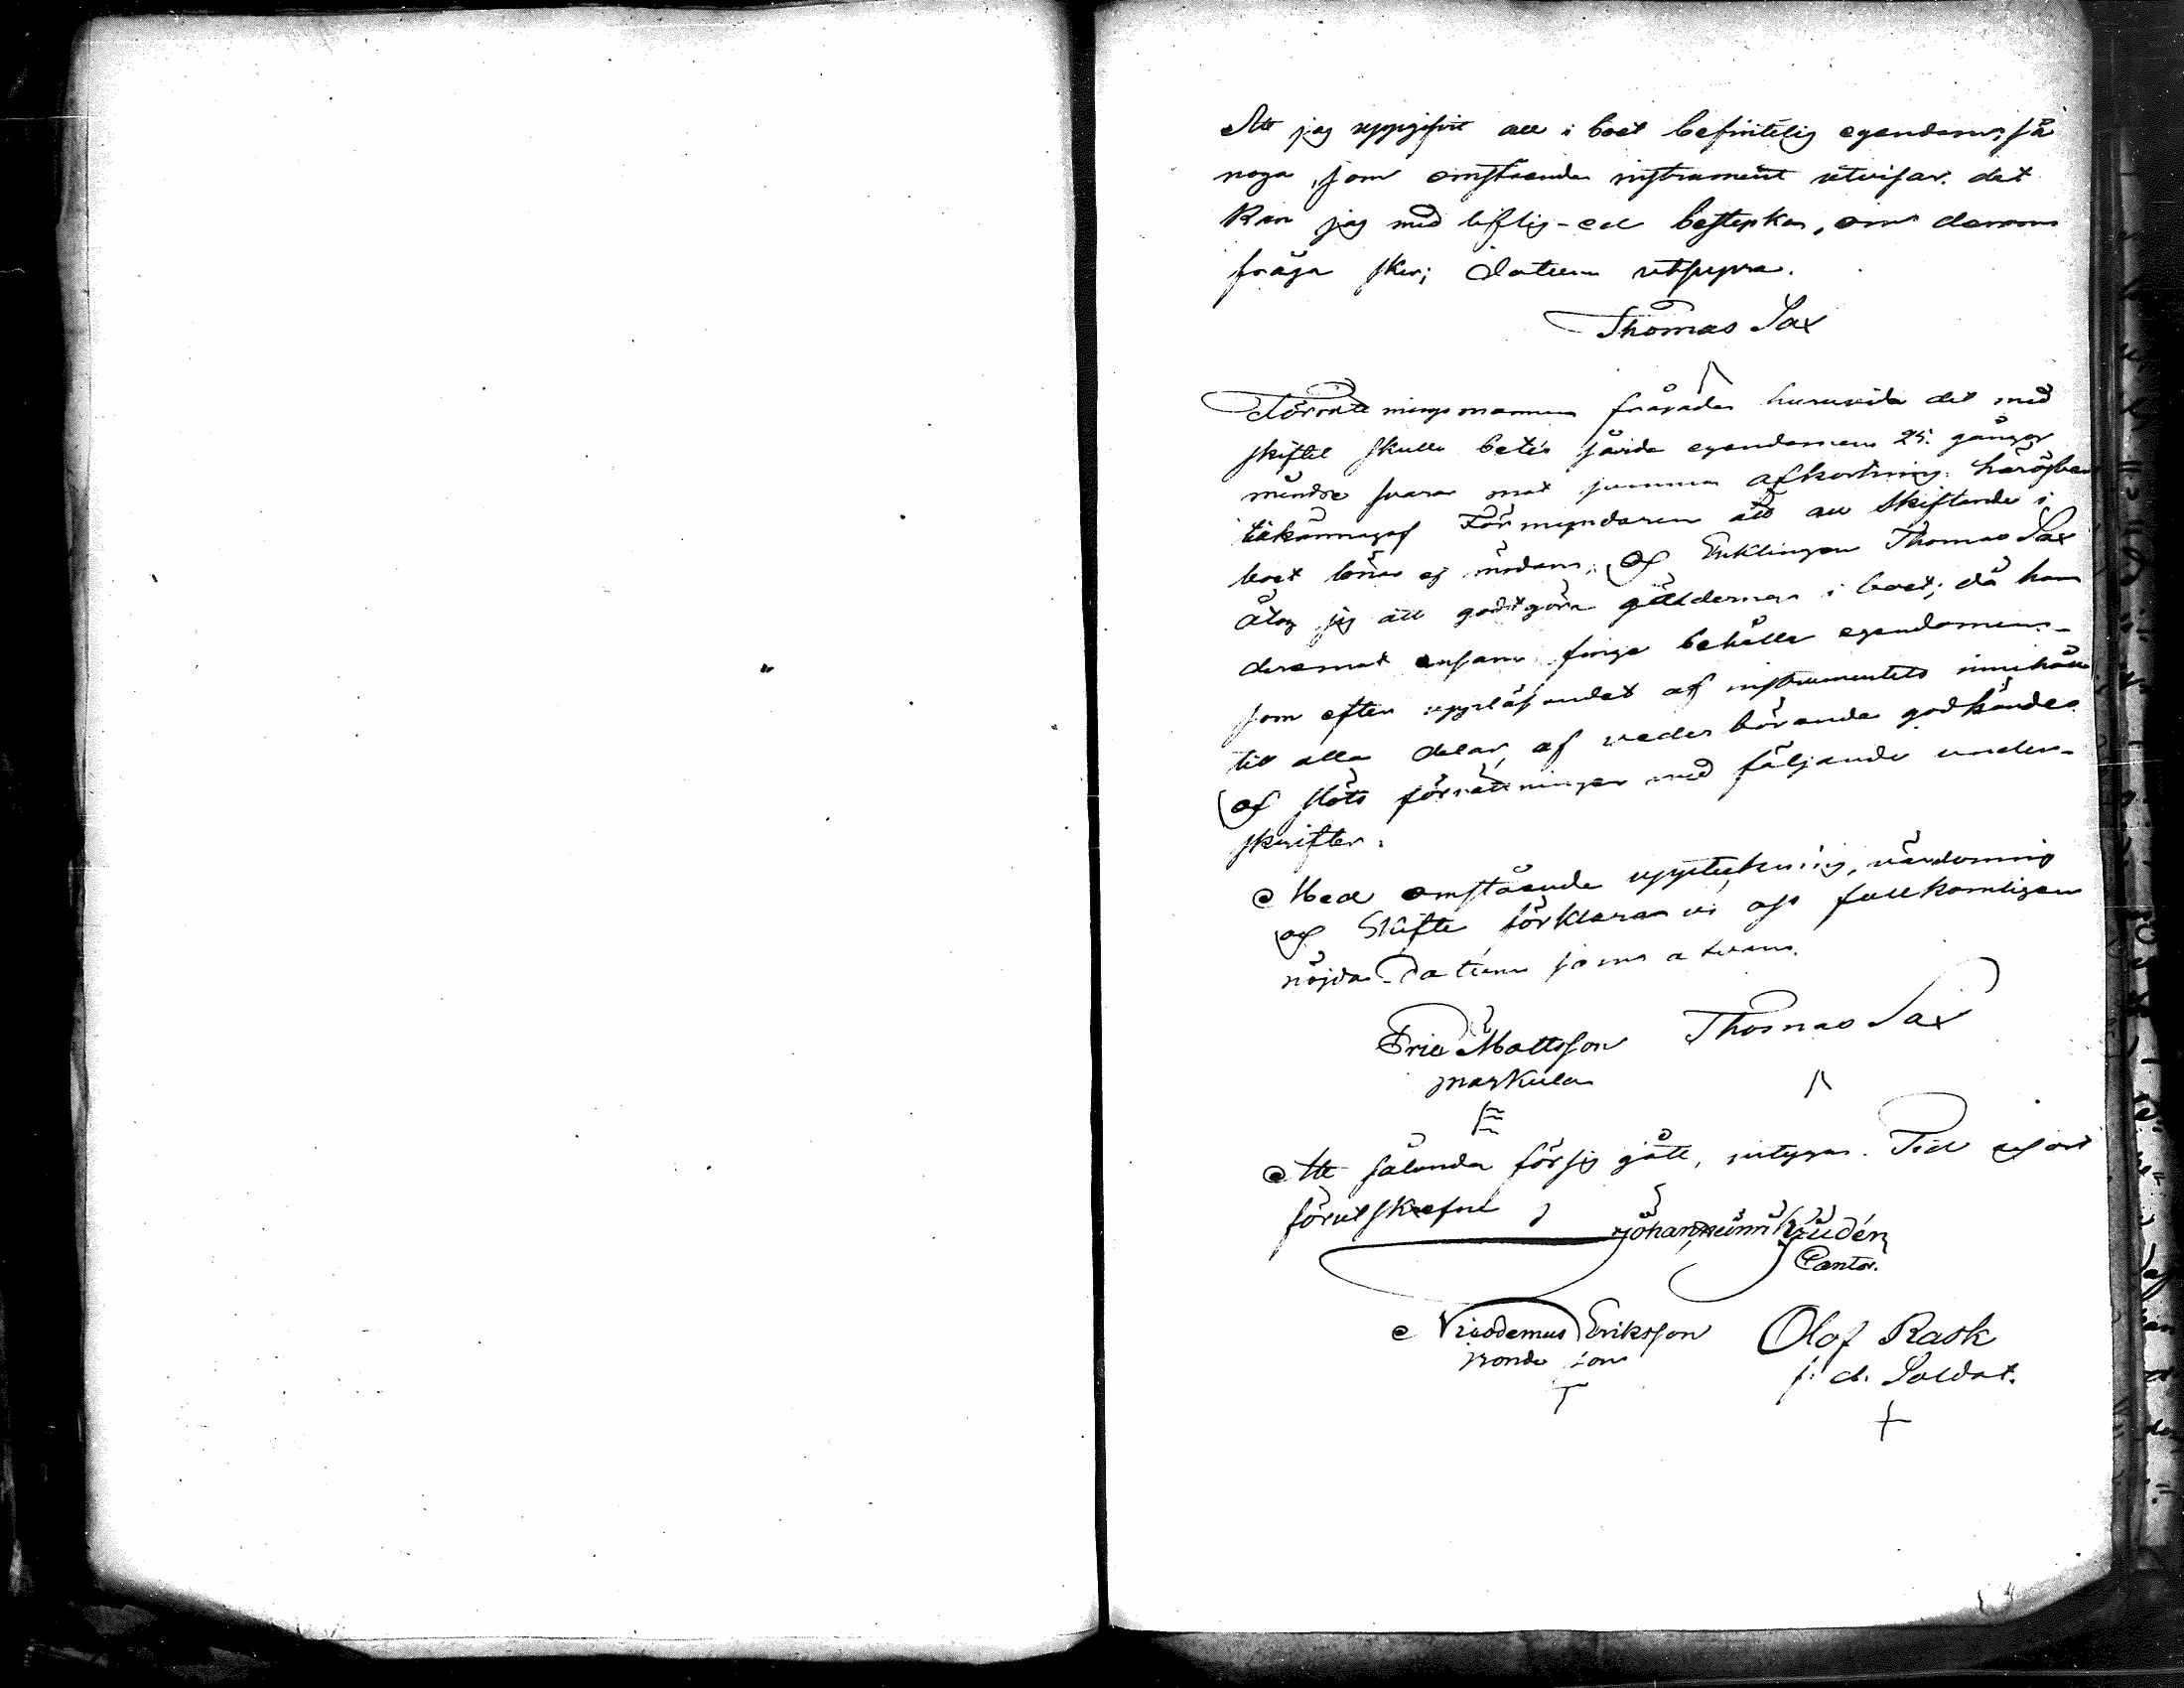 Att jag uppgifvit all i boet befintelig egendom, så
noga, som omstående instrument utvisar, det
kan jag med liflig-ed bestyrka, om derom
fråga sker; datum utsupra.
Thomas Sax
Förrättningsmannen frågade huruvida det med
skiftet skulle
mindre svarar mot summan afkortning. häröfver
tilkännagaf Förmyndaren att all skiftande i
boet löner ej mödan; och Enklingen Thomas Sax
åtog sig att godtgöra gälldernas i boet; då han
deremot ensam finge behålla egendomen -
som efter uppläsandet af instrumentets innehåll
till alla delar, af vederbörande godkändes
och slöts förrättningen med följande under-
skrifter.
Med omstående uppteckning, värdering
och Skifte förklarar vi oss fullkomligen
nöjda. Datum som ofvan.
Eric Mattsson Thomas Sax
Att sålunda försig gått, intygar. Tid och ort
förutskrefne
Johan
Cantor.
Nicodemus Eriksson Olof Rask
bonde son f. d. Soldat.